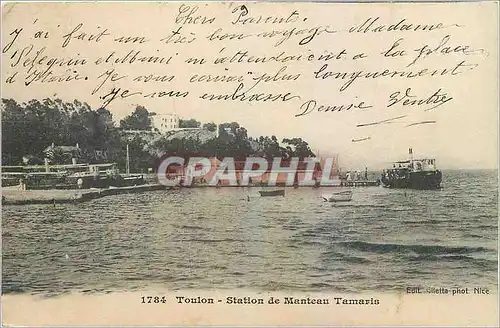 Chers Parents.
J'ai fait un très bon voyage Madame
Pélegrin et Mimi m'attendaient à la place
d'Italie. Je vous écrirai plus longuement.
Je vous embrasse
Denise Ventre
CPARAMA.com
Edit. Giletta phot. Nice
1784 Toulon - Station de Manteau Tamaris